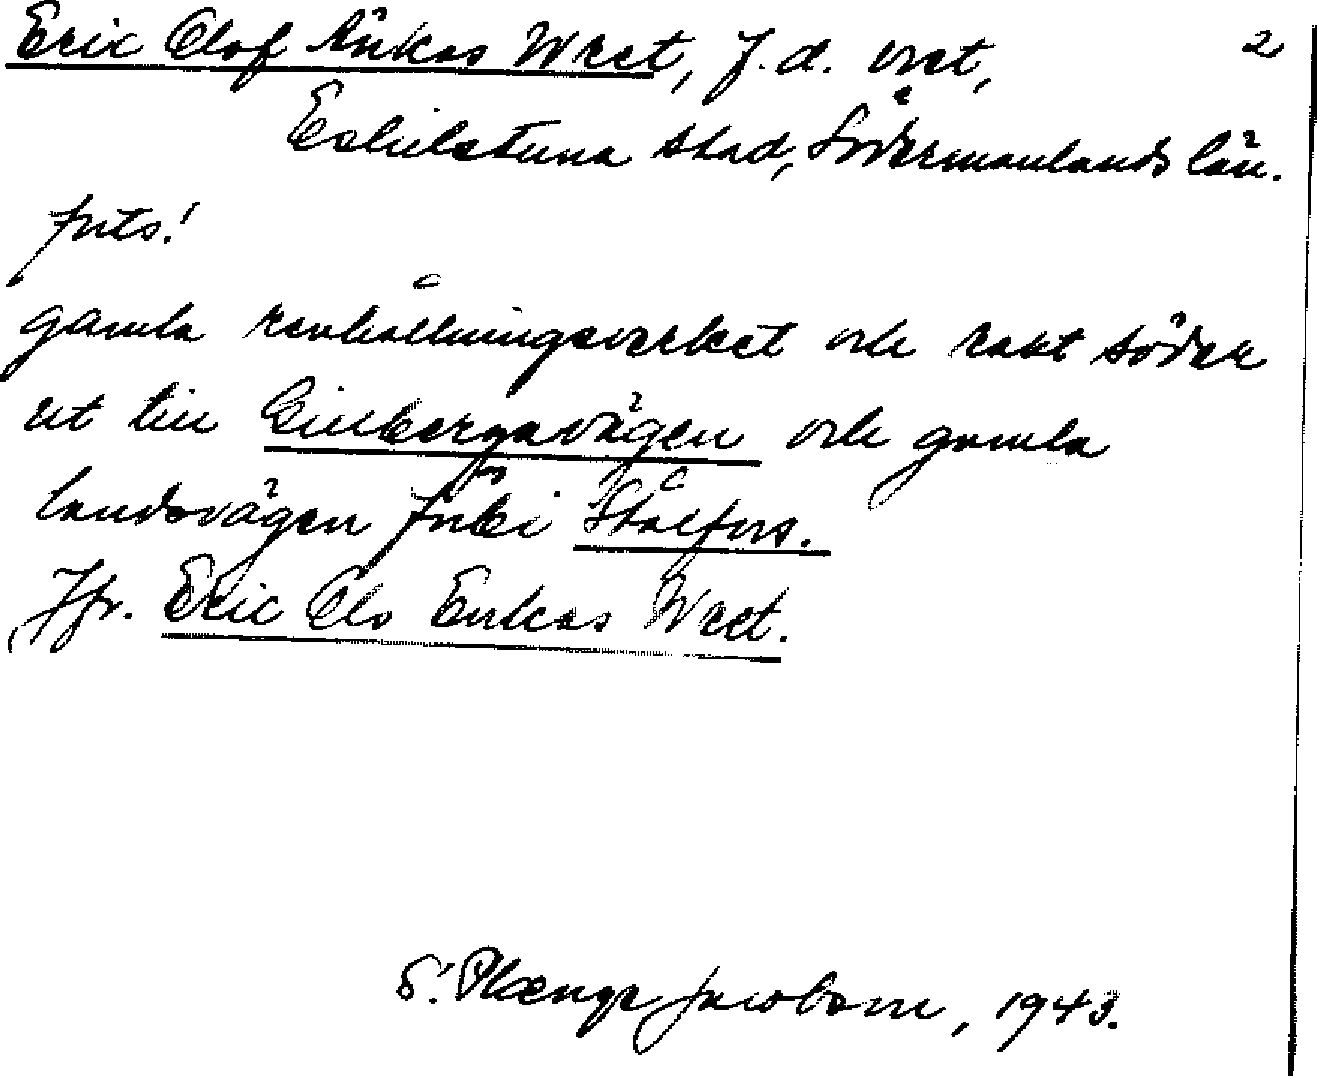 Eric Olof Änkas Wret, f. d. vret, 2
Eskilstuna stad, Södermanlands län.
forts.!
gamla renhållningsverket och rakt söder
ut till Gillbergavägen och gamla
landsvägen förbi Stålfors.
Jfr. Eric Ols Enkas Wret.
S. Plænge Jacobson, 1943.